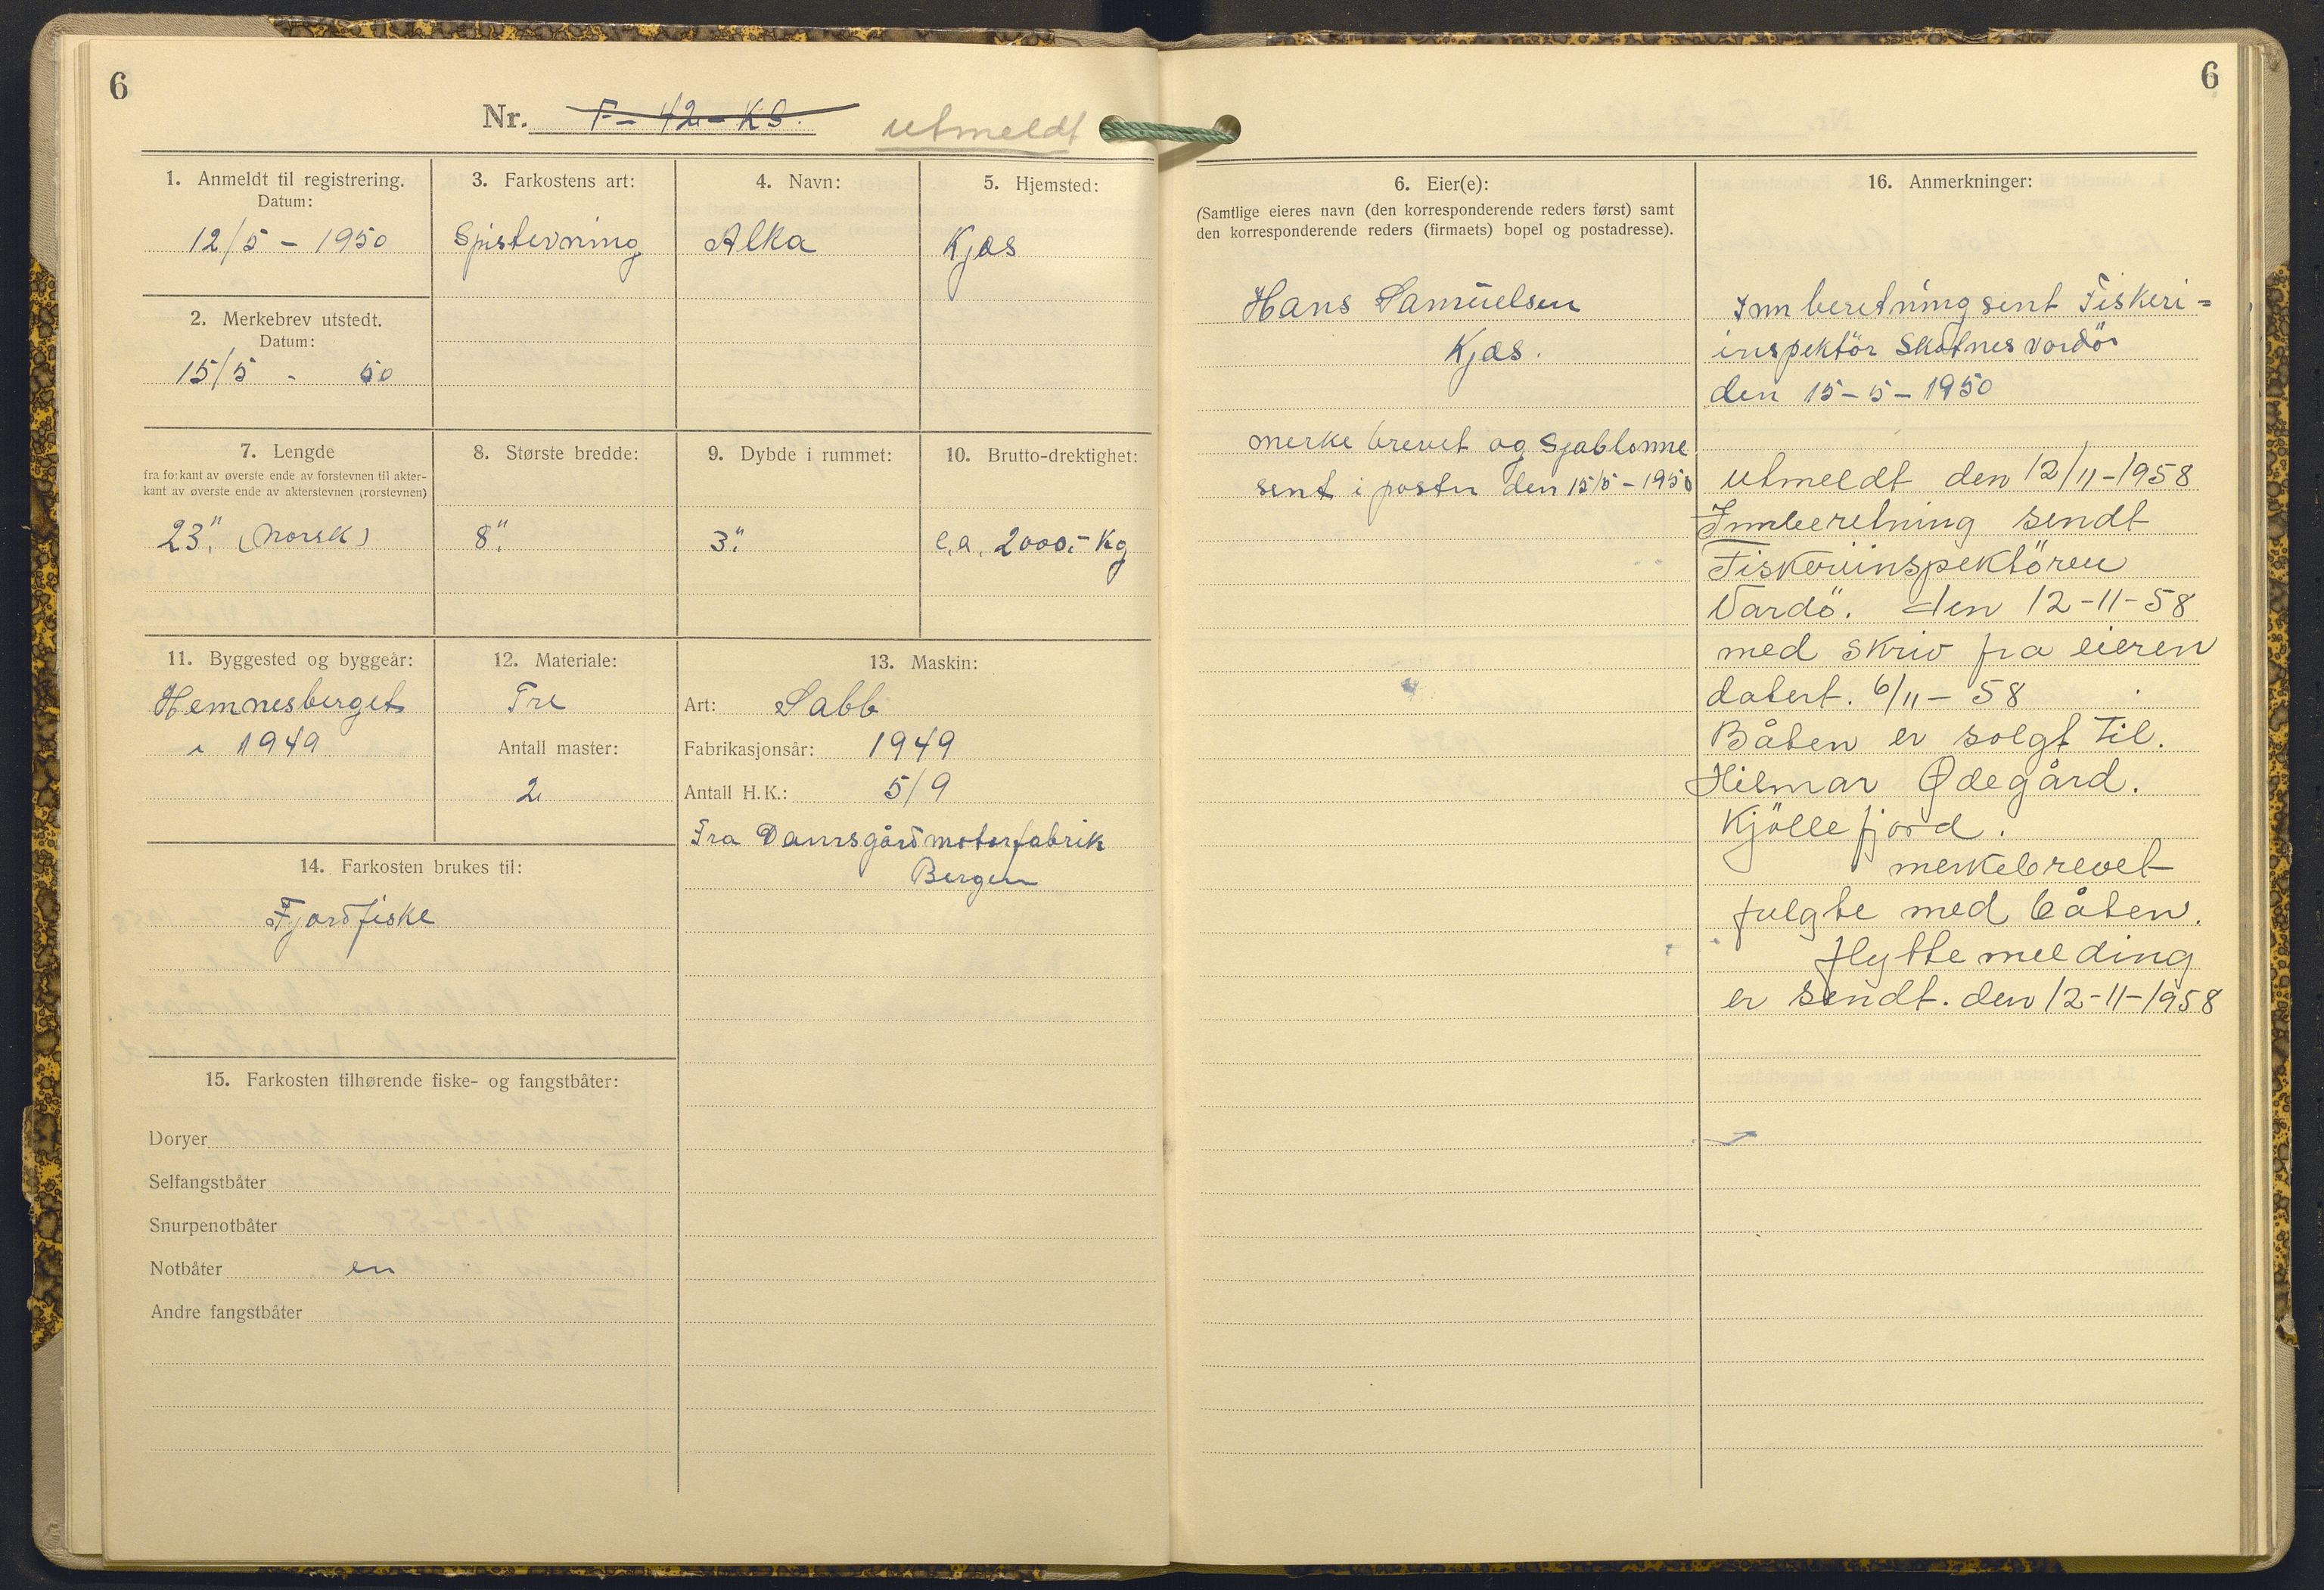 6
Nr. F-42-KS. utmeldt
1. Anmeldt til registrering.
Datum:
12/5 - 1950
3. Farkostens art:
Spistevning
4. Navn:
Alka
5. Hjemsted:
Kjæs
2. Merkebrev utstedt.
Datum:
15/5 - 50
7. Lengde
fra forkant av øverste ende av forstevnen til akter-
kant av øverste ende av akterstevnen (rorstevnen)
23". (norsk)
8. Største bredde:
8".
9. Dybde i rummet:
3".
10. Brutto-drektighet:
c.a. 2000.- Kg
11. Byggested og byggeår:
Hemnesberget
i 1949
12. Materiale:
Tre
Antall master:
2
13. Maskin:
Art: Sabb
Fabrikasjonsår: 1949
Antall H.K.: 5/9
Fra Damsgård motorfabrik
Bergen
14. Farkosten brukes til:
Fjordfiske
15. Farkosten tilhørende fiske- og fangstbåter:
Doryer
Selfangstbåter
Snurpenotbåter
Notbåter en
Andre fangstbåter
6
6. Eier(e):
(Samtlige eieres navn (den korresponderende reders først) samt
den korresponderende reders (firmaets) bopel og postadresse).
Hans Samuelsen
Kjæs.
merke brevet og Sjablonne
sent i posten den 15/5 - 1950
16. Anmerkninger:
Innberetning sent Fiskeri=
inspektör Skotnes vardö
den 15-5-1950
utmeldt den 12/11-1958
Innberetning sendt
Fiskeriinspektören
Vardö. den 12-11-58
med skriv fra eieren
datert. 6/11 - 58
Båten er solgt til.
Hilmar Ødegård.
Kjöllefjord.
merkebrevet
fulgte med båten.
flyttemelding
er sendt. den 12-11-1958